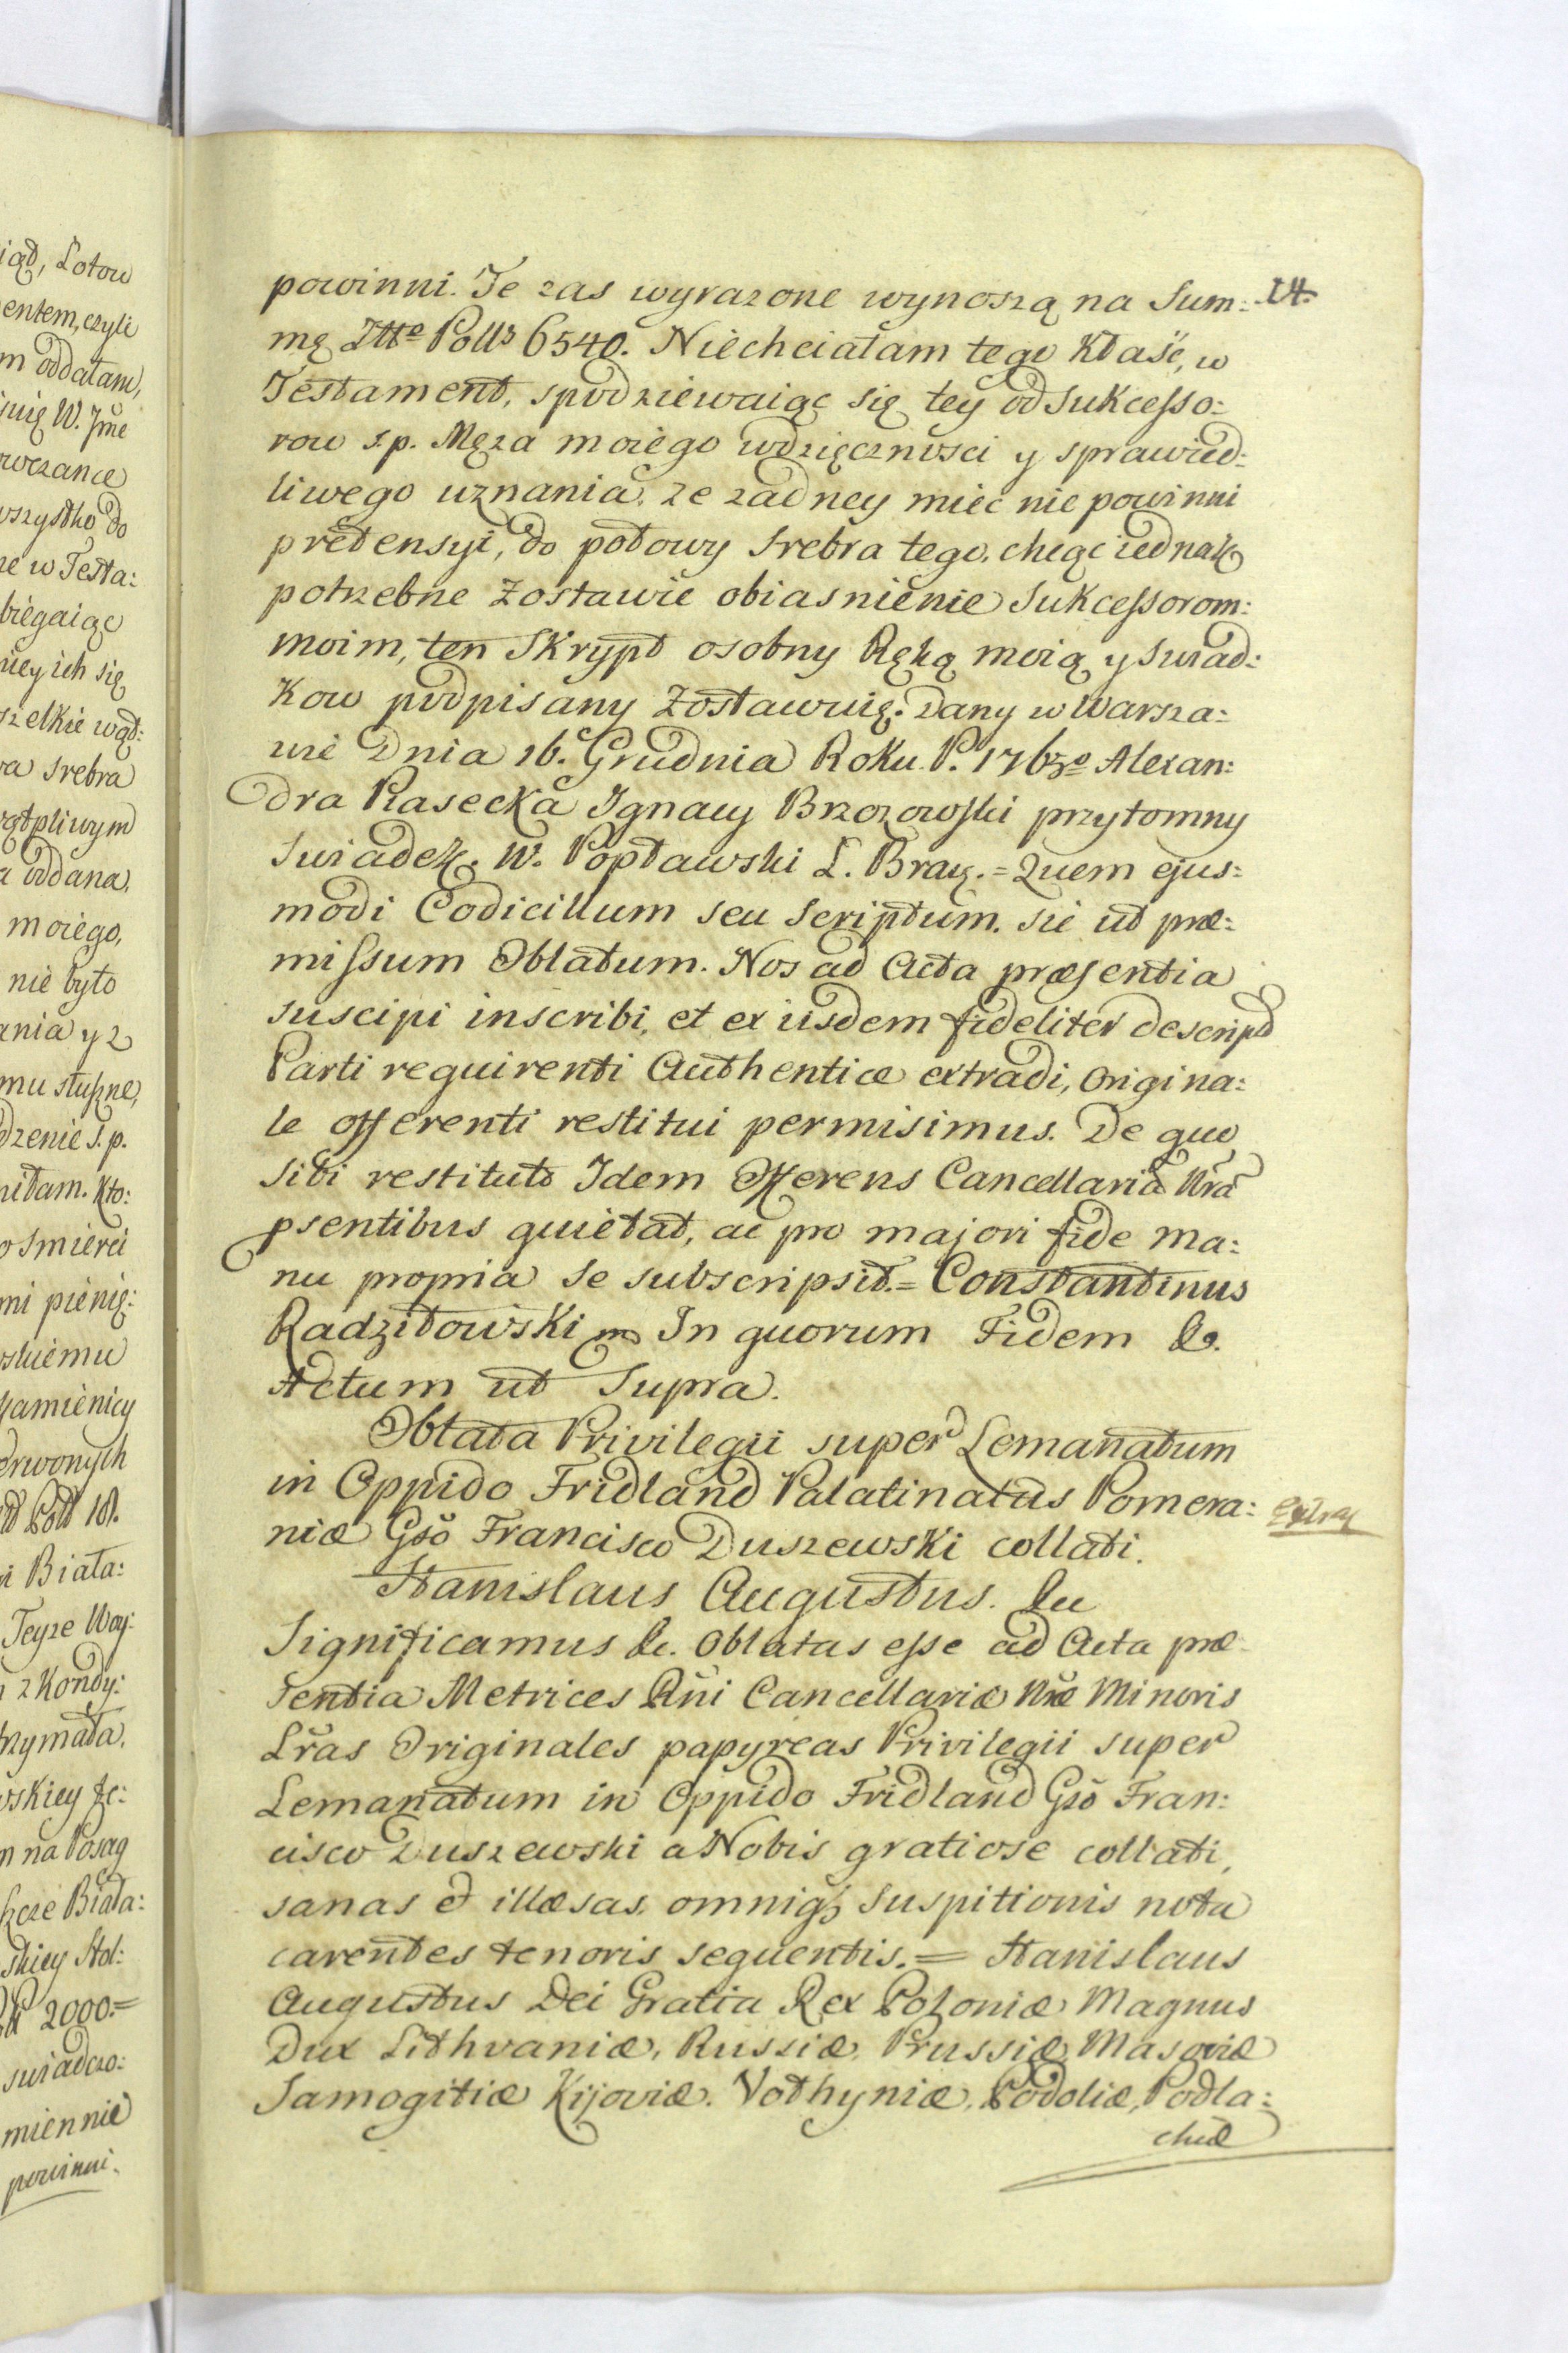 iąd, Lotow
entem, czyli
m oddałam,
W. Jmć
wszystko do
ne w Testa:
biegaiąc
niey ich się
szelkie wąt:
ra srebra
wątpliwym
a oddana.
moiego,
nie było
ania y z
mu słuszne,
dzenie s.p.
Kto:
o smierci
mi pienię:
skiemu
Kamienicy
erwonych
18.
Biała:
Teyze Way:
z Kondy:
rzymała.
wskiey
n na Posag
Biała:
skiey
2000.=
swiadczo:
miennie
powinni.
powinni. Te zas wyrazone wynoszą na Sum: 14.
mę Złło Polls 6540. Niechciałam tego Kłaść, w
Testament, spodziewaiąc się tey od Sukcesso:
row s.p. Męza moiego wdzięcznosci y sprawied:
liwego uznania, ze zadney miec nie powinni
pretensyi, do połowy Srebra tego, chcąc iednak
potrzebne Zostawic obiasnienie Sukcessorom:
moim, ten Skrypt osobny Ręką moią y Swiad:
Kow podpisany Zostawuię. Dany w Warsza:
wie Dnia 16. Grudnia Roku P. 1763o Alexan:
dra Rasecka Ignacy Brzozowski przytomny
Swiadek. W. Popławski L. Braz. = Quem ejus:
modi Codicillum seu Scriptum. sic ut præ:
missum Oblatum. Nos ad Acta præsentia
suscipi inscribi, et ex iisdem fideliter descript
Parti requirenti Authentice extradi, Origina:
le offerenti restitui permisimus. De quo
sibi restituto Idem Offerens Cancellaria Nra
psentibus quietat, ac pro majori fide ma:
nu propria se subscripsit. = Constantinus
Radziłowski mp In quorum Fidem &.
Actum ut Supra.
Oblata Privilegii super Lemanatum
in Oppido Fridland Palatinatus Pomera:
niæ Gso Francisco Duszewski collati.
Stanislaus Augustus. &c
Significamus &c. Oblatas esse ad Acta præ
sentia Metrices Rñi Cancellariæ Nræ Minoris
Lras Originales papyreas Privilegii super
Lemanatum in Oppido Fridland Gso Fran:
cisco Duszewski a Nobis gratiose collati,
sanas et illæsas, omniq suspitionis nota
carentes tenoris sequentis. = Stanislaus
Augustus Dei Gratia Rex Poloniæ Magnus
Dux Lithvaniæ, Russiæ, Prussiæ, Masoviæ
Samogitiæ Kijoviæ. Volhyniæ, Podoliæ, Podla:
chiæ